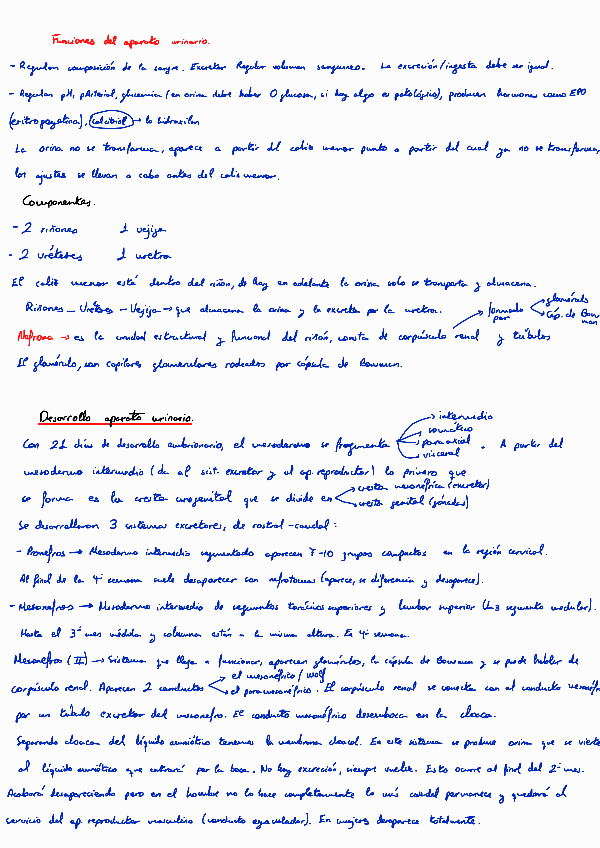 Funciones del aparato urinario.
- Regulan composición de la sangre. Excretar Regular volumen sanguíneo. La excreción/ingesta debe ser igual.
- Regulan pH, pArterial, glucemia (en orina debe haber 0 glucosa, si hay algo es patológico), producen hormonas como EPO
(eritropoyetina), calcitriol → lo hidroxilan
La orina no se transforma, aparece a partir del caliz menor punto a partir del cual ya no se transforma,
los ajustes se llevan a cabo antes del caliz menor.
Componentes.
- 2 riñones 1 vejiga
- 2 uréteres 1 uretra
El caliz menor está dentro del riñón, de hay en adelante la orina solo se transporta y almacena.
Riñones - Uréteres - Vejiga → que almacena la orina y la excreta por la uretra.
Nefrona → es la unidad estructural y funcional del riñón, consta de corpúsculo renal y túbulos
formado por
glomérulo
Cáp. de Bowman
El glomérulo, son capilares glomerulares rodeados por cápsula de Bowman.
Desarrollo aparato urinario.
Con 21 días de desarrollo embrionario, el mesodermo se fragmenta
intermedio
somático
paraaxial
visceral
. A partir del
mesodermo intermedio (da al sist. excretor y al ap. reproductor) lo primero que
se forma es la cresta urogenital que se divide en
cresta mesonéfrica (excretor)
cresta genital (gónadas)
Se desarrollaron 3 sistemas excretores, de rostral-caudal:
- Pronefros → Mesodermo intermedio segmentado aparecen 7-10 grupos compactos en la región cervical.
Al final de la 4ª semana suele desaparecer con nefrotomas (aparece, se diferencia y desaparece).
- Mesonefros → Mesodermo intermedio de segmentos torácicos superiores y lumbar superior (L3 segmento medular).
Hasta el 3er mes médula y columna están a la misma altura. En 4ª semana.
Mesonefros (II) → Sistema que llega a funcionar, aparecen glomérulos, la cápsula de Bowman y se puede hablar de
corpúsculo renal. Aparecen 2 conductos
el mesonéfrico / Wolf
el paramesonéfrico
. El corpúsculo renal se conecta con el conducto mesonéfrico
por un túbulo excretor del mesonefro. El conducto mesonéfrico desemboca en la cloaca.
Separando cloaca del líquido amniótico tenemos la membrana cloacal. En este sistema se produce orina que se vierte
al líquido amniótico que entrará por la boca. No hay excreción, siempre vuelve. Esto ocurre al final del 2º mes.
Acabará desapareciendo pero en el hombre no lo hace completamente lo más caudal permanece y quedará al
servicio del ap. reproductor masculino (conducto eyaculador). En mujeres desaparece totalmente.